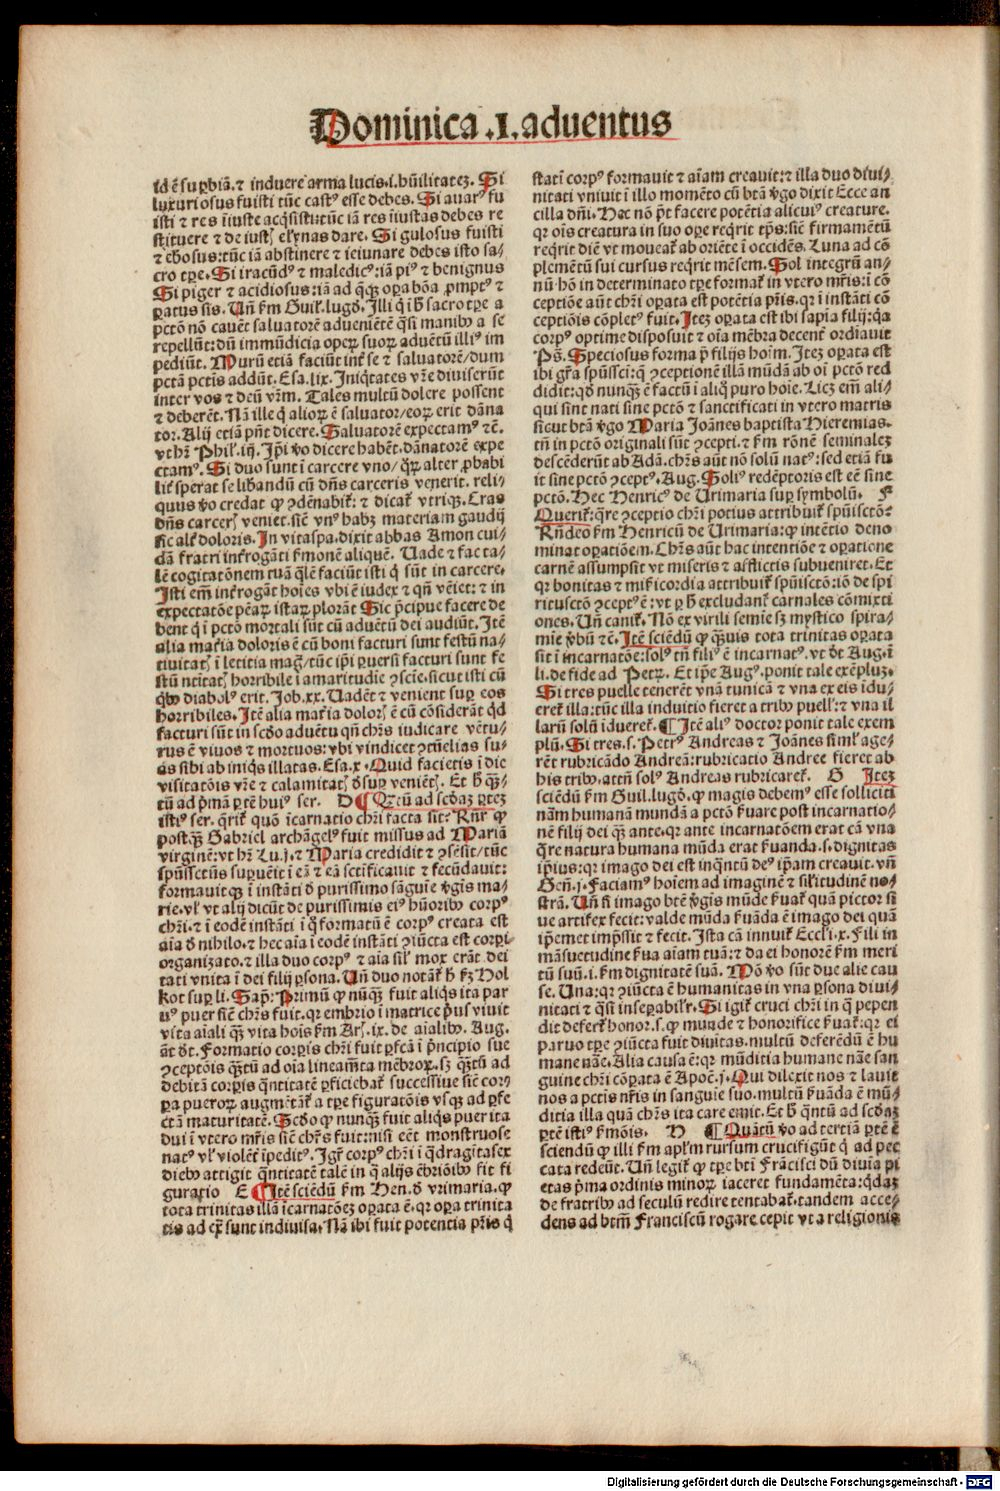 Dominica .I. aduentus
id ē suꝑbiā. ⁊ induere arma lucis .i. hūilitatez. Si
luxuriosus fuisti tūc castꝰ esse debes. Si auarꝰ fu
isti ⁊ res iiuste acq̄sisti: tūc iā res iiustas debes re
stituere ⁊ de iustꝭ elx̄nas dare. Si gulosus fuisti
⁊ eb̓osus: tūc iā abstinere ⁊ ieiunare debes isto sa⸗
cro tꝑe. Si iracūdꝰ ⁊ maledicꝰ: iā piꝰ ⁊ benignus
Si piger ⁊ acidiosus: iā ad q̄cūqꝫ oꝑa bōa ꝓmptꝰ ⁊
ꝑatus sis. Un̄ ẜm Guil. lugd̓. Illi q̇ i h̓ sacro tꝑe a
pctō nō cauēt saluatorē aduenietē q̄si manibꝰ a se
repellūt: dū immūdicia opeꝝ suoꝝ aduētū illiꝰ im
pediūt. Murū etiā faciūt int̓ se ⁊ saluatorē/ dum
pctā pctis addūt. Esa. lix. Iniq̇tates vr̄e diuiserūt
inter vos ⁊ deū vr̄m. Tales multū dolere possent
⁊ deberēt. Nā ille q̇ alioꝝ ē saluator/ eoꝝ erit dāna
tor. Alij etiā pn̄t dicere. Saluatorē expectamꝰ ⁊c̄.
vt hr̄ Phil̓. iij. Ip̄i ꝟo dicere habēt. dānatorē expe
ctamꝰ. Si duo sunt i carcere vno/ q̄ꝝ alter ꝓbabi
lit̓ sperat se libandū cū dn̄s carceris venerit. reli⸗
quus ꝟo credat ꝙ ꝯdēnabit̓: ⁊ dicat̓ vtriqꝫ. Cras
dn̄s carcerꝭ veniet. sic̄ vnꝰ habꝫ materiam gaudij
sic alt̓ doloris. In vitaspa. dixit abbas Amon cui⸗
dā fratri int̓rogāti ẜmonē aliquē. Uade ⁊ fac ta⸗
lē cogitatōnem tuā q̄lē faciūt isti q̇ sūt in carcere.
Isti em̄ int̓rogāt hoīes vbi ē iudex ⁊ qn̄ vēiet: ⁊ in
expectatōe pēaꝝ istaꝝ plorāt Sic p̄cipue facere de
bent q̇ i pctō mortali sūt cū aduētū dei audiūt. Itē
alia mat̓ia doloris ē cū boni facturi sunt festū na⸗
tiuitatꝭ i leticia maḡ/ tūc ip̄i ꝑuersi facturi sunt fe
stū nt̄itatꝭ horribile i amaritudie ꝯscie. sicut isti cū
q̇bꝰ diabolꝰ erit. Job. xx. Uadēt ⁊ venient suꝑ eos
horribiles. Itē alia mat̓ia dolorꝭ ē cū cōsiderāt q̇d
facturi sūt in sc̄do aduētu qn̄ chr̄s iudicare vētu⸗
rus ē viuos ⁊ mortuos: vbi vindicet ꝯtūelias su⸗
as sibi ab iniq̇s illatas. Esa. x. Quid facietis i die
visitatōis vr̄e ⁊ calamitatꝭ d̓ suꝑ veniētꝭ. Et h̓ q̄⸗
tū ad pͥmā ꝑtē huiꝰ ser. D ¶ Qz̄tū ad sc̄daꝫ ꝑtez
istiꝰ ser. q̄rit̓ quō icarnatio chr̄i facta sit: Rn̄r ꝙ
postqꝫ Gabriel archāgelꝰ fuit missus ad Mariā
virginē: vt hr̄ Lu. j. ⁊ Maria credidit ⁊ ꝯsēsit/ tūc
spūssctūs suꝑuēit i eā ⁊ eā sctificauit ⁊ fecūdauit:
formauitqꝫ i instāti d̓ purissimo sāguie ꝟgīs ma⸗
rie. vl̓ vt alij dicūt de purissimis eiꝰ hūoribꝰ corpꝰ
chr̄i. ⁊ i eodē instāti i q̊ formatū ē corpꝰ creata est
aīa d̓ nihilo. ⁊ hec aīa i eodē instāti ꝯiūcta est corpi⸗
organizato. ⁊ illa duo corpꝰ ⁊ aīa sil̓ mox erāt dei
tati vnita i dei filij ꝑsona. Un̄ duo notāt̓ h̓ ẜꝫ Hol
kot suꝑ li. Sap̄: Primū ꝙ nūqꝫ fuit aliq̇s ita par
uꝰ puer sic̄ chr̄s fuit. qꝛ embrio i matrice pͥus viuit
vita aīali qꝫ vita hoīs ẜm Arꝭ. ix. de aīalibꝰ. Aug.
āt dt̓. Formatio corꝑis chr̄i fuit ꝑfcā i pͥncipio sue
ꝯceptōis q̄tū ad oīa lineam̄ta mēbroꝝ. sꝫ q̄tū ad
debitā corꝑis q̄ntitatē ꝑficiebat̓ successiue sic̄ corꝰ
ꝑa pueroꝝ augmētāt̓ a tꝑe figuratōis vsqꝫ ad ꝑfe
ctā maturitatē. Sc̄do ꝙ nunqꝫ fuit aliq̇s puer ita
diu i vtero mr̄is sic̄ chr̄s fuit: nisi eēt monstruose
natꝰ vl̓ violēt̓ ipeditꝰ. Igr̄ corpꝰ chr̄i i q̇dragītasex
diebꝰ attigit q̄ntitatē talē in q̄ alijs ēbriōibꝰ fit fi
guratio E ¶ Itē sciēdū ẜm Hen. d̓ vrimaria. ꝙ
tota trinitas illā icarnatōeꝫ oꝑata ē. qꝛ oꝑa trinita
tis ad ex̄ sunt indiuisa. Nā ibi fuit potentia pr̄is q̄
stati corpꝰ formauit ⁊ aīam creauit: ⁊ illa duo diui⸗
nitati vniuit i illo momēto cū btā ꝟgo dixit Ecce an
cilla dn̄i. Hec nō p̄t facere potētia alicuiꝰ creature.
qꝛ oīs creatura in suo oꝑe req̇rit tp̄s: sic̄ firmamētū
req̇rit diē vt moueat̓ ab oriēte i occidēs. Luna ad cō
plemētū sui cursus req̇rit mēsem. Sol integrū an⸗
nū hō in determinato tꝑe format̓ in vtero mr̄is: i cō
ceptiōe aūt chr̄i oꝑata est potētia pr̄is. qꝛ i instāti cō
ceptiōis cōpletꝰ fuit. Itez oꝑata est ibi sapīa filij: q̄a
corpꝰ optime disposuit ⁊ oīa mēbra decent̓ ordīauit
Ps̄. Speciosus forma p̄ filijs hoīm. Itez oꝑata est
ibi gr̄a spūssci: q̄ ꝯceptionē illā mūdā ab oī pctō red
didit: qd̓ nunqꝫ ē factū i aliq̊ puro hoīe. Licꝫ em̄ ali⸗
qui sint nati sine pctō ⁊ sanctificati in vtero matris
sicut btā ꝟgo Maria Joānes baptista Hieremias.
tn̄ in pctō originali sūt ꝯcepti. ⁊ ẜm rōnē seminalez
descēderūt ab Adā. chr̄s aūt nō solū natꝰ: sed etiā fu
it sine pctō ꝯceptꝰ. Aug. Soliꝰ redēptoris est eē sine
pctō. Hec Henricꝰ de Urimaria suꝑ symbolū. F
Querit̓: q̄re ꝯceptio chr̄i potius attribuit̓ spūisctō:
Rn̄deo ẜm Henricū de Urimaria: ꝙ intētio deno
minat oꝑatiōem. Chr̄s aūt hac intentiōe ⁊ oꝑatione
carnē assumpsit vt miseris ⁊ afflictis subueniret. Et
qꝛ bonitas ⁊ mīs̓icordia attribuit̓ spūisctō: iō de spi
ritusctō ꝯceptꝰ ē: vt ꝑ h̓ excludant̓ carnales cōmixti
ones. Un̄ canit̓. Nō ex virili semīe sꝫ mystico spira⸗
mīe ꝟbū ⁊c̄. Itē sciēdū ꝙ q̄uis tota trinitas oꝑata
sit i incarnatōe: solꝰ tn̄ filiꝰ ē incarnatꝰ. vt dt̓ Aug. i
li. de fide ad Petꝝ. Et ip̄e Augꝰ. ponit tale exēpluꝫ.
Si tres puelle tenerēt vnā tunicā ⁊ vna ex eis idu⸗
eret̓ illa: tūc illa induitio fieret a tribꝰ puell̓: ⁊ vna il
larū solū idueret̓. ¶ Itē aliꝰ doctor ponit tale exem
plū. Si tres .s. Petrꝰ Andreas ⁊ Joānes siml̓ age⸗
rēt rubricādo Andreā: rubricatio Andree fieret ab
his tribꝰ. attn̄ solꝰ Andreas rubricaret̓. G Itez
sciēdū ẜm Guil. lugd̓. ꝙ magis debemꝰ esse solliciti
nām humanā mundā a pctō ẜuare post incarnatio⸗
nē filij dei qꝫ ante. qꝛ ante incarnatōem erat cā vna
q̄re natura humana mūda erat ẜuanda .s. dignitas
ip̄ius: qꝛ imago dei est inq̄ntū deꝰ ip̄am creauit. vn̄
Gen̄. j. Faciamꝰ hoīem ad imaginē ⁊ sil̓itudinē no⸗
strā. Un̄ si imago btē ꝟgīs mūde ẜuat̓ quā pictor si
ue artifex fecit: valde mūda ẜuāda ē imago dei quā
ip̄emet imp̄ssit ⁊ fecit. Ista cā innuit̓ Eccl̓i. x. Fili in
māsuetudine ẜua aīam tuā: ⁊ da ei honorē ẜm meri
tū suū .i. ẜm dignitatē suā. Mō ꝟo sūt due alie cau
se. Una: qꝛ ꝯiūcta ē humanitas in vna ꝑsona diui⸗
nitati ⁊ q̄si inseꝑabilr̄. Si igit̓ cruci chr̄i in q̄ pepen
dit defert̓ honor .s. ꝙ munde ⁊ honorifice ẜuat̓: qꝛ ei
paruo tꝑe ꝯiūcta fuit diuitas. multū deferēdū ē hu
mane nāe. Alia causa ē: qꝛ mūditia humane nāe san
guine chr̄i cōꝑata ē Apoc̄. j. Qui dilexit nos ⁊ lauit
nos a pctis nr̄is in sanguie suo. multū ẜuāda ē mū⸗
ditia illa quā chr̄s ita care emit. Et h̓ q̄ntū ad sc̄daꝫ
ꝑtē istiꝰ ẜmōis. H ¶ Quātū ꝟo ad tertiā ꝑtē ē
sciendū ꝙ illi ẜm apl̓m rursum crucifigūt q̇ ad pec
cata redeūt. Un̄ legit̓ ꝙ tꝑe bti Frācisci dū diuia pi
etas pͥma ordinis minoꝝ iaceret fundamēta: q̇daꝫ
de fratribꝰ ad seculū redire tentabat̓. tandem acce⸗
dens ad btm̄ Franciscū rogare cepit vt a religionis